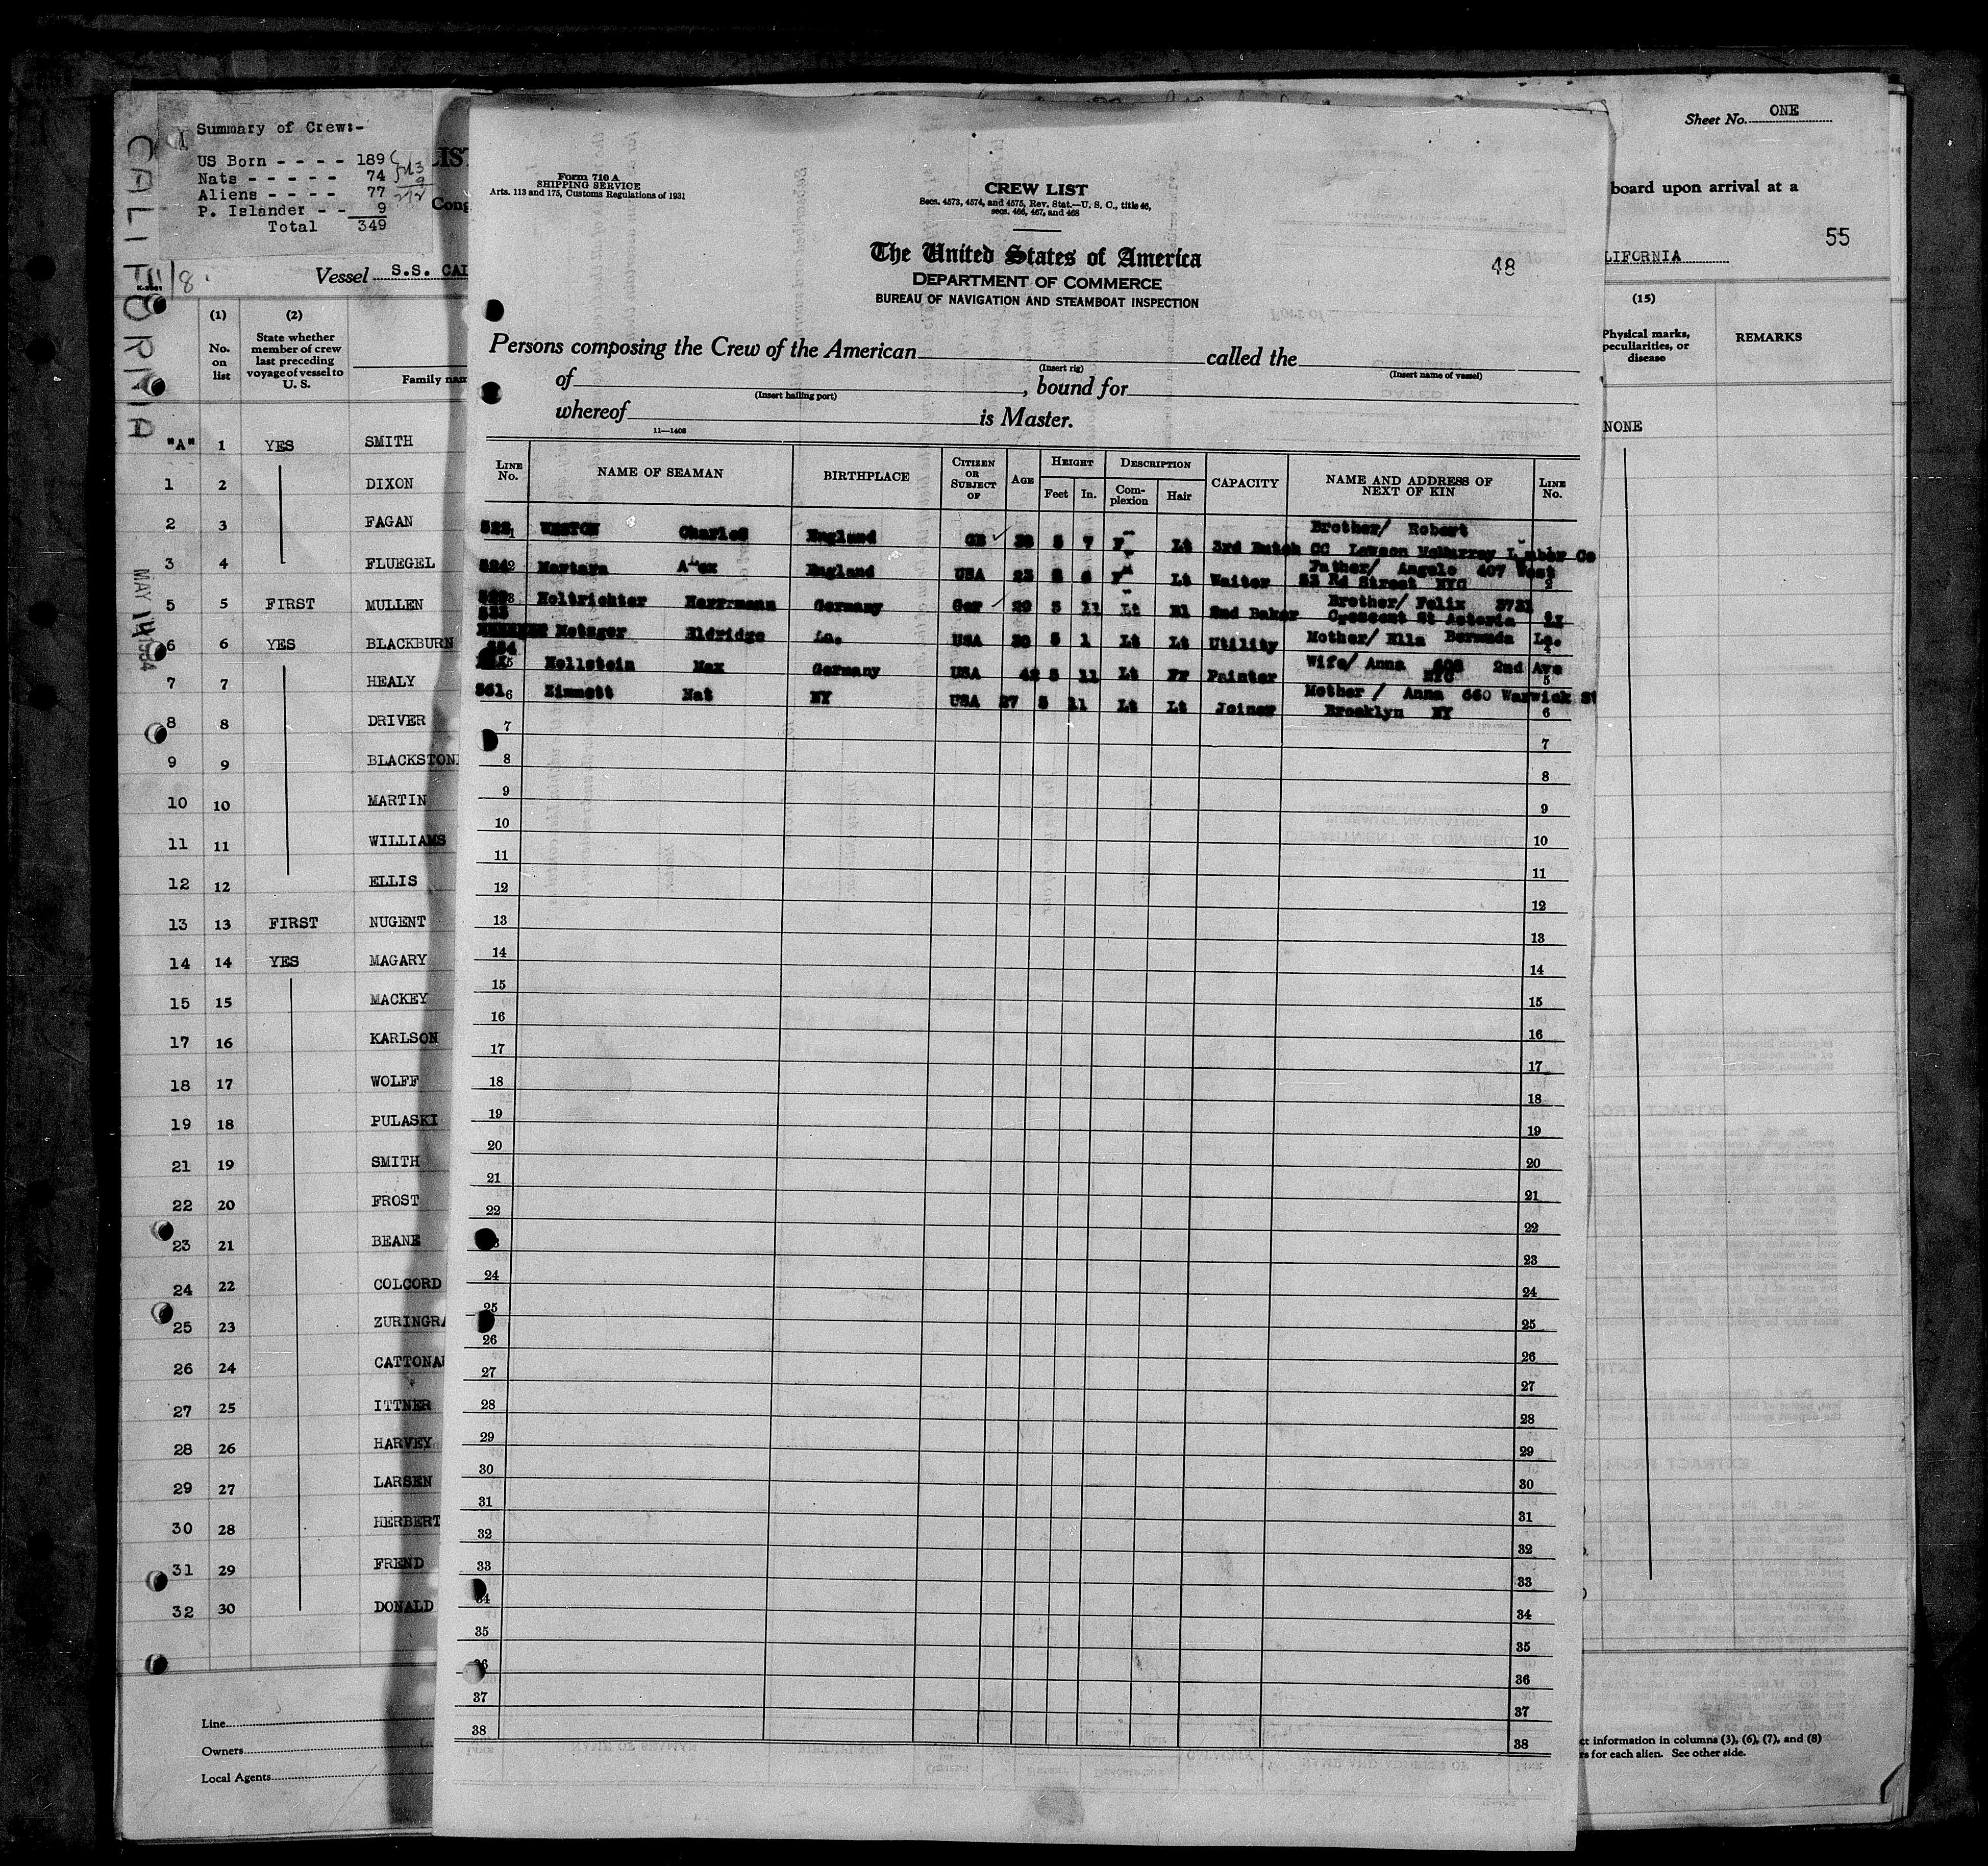 CALIFORNIA
Summary of Crew:-
US Born - - - - 189
Nats - - - - - 74
Aliens - - - - 77
P. Islander - - 9
Total 349
Vessel S.S. CAL
K-8061
18.
LIST
Cong
(1) (2)
No. on list
State whether member of crew last preceding voyage of vessel to U. S.
Family nam
"A" 1 YES SMITH
1 2 DIXON
2 3 FAGAN
3 4 FLUEGEL
5 5 FIRST MULLEN
6 6 YES BLACKBURN
7 7 HEALY
8 8 DRIVER
9 9 BLACKSTON
10 10 MARTIN
11 11 WILLIAMS
12 12 ELLIS
13 13 FIRST NUGENT
14 14 YES MAGARY
15 15 MACKEY
17 16 KARLSON
18 17 WOLFF
19 18 PULASKI
21 19 SMITH
22 20 FROST
23 21 BEANE
24 22 COLCORD
25 23 ZURINGRA
26 24 CATTONA
27 25 ITTNER
28 26 HARVEY
29 27 LARSEN
30 28 HERBERT
31 29 FREND
32 30 DONALD
MAY 14 1934
Line
Owners
Local Agents
Form 710 A
SHIPPING SERVICE
Arts. 113 and 175, Customs Regulations of 1931
CREW LIST
Secs. 4573, 4574, and 4575, Rev. Stat.—U. S. C., title 46,
secs. 466, 467, and 468
The United States of America
DEPARTMENT OF COMMERCE
BUREAU OF NAVIGATION AND STEAMBOAT INSPECTION
48
Persons composing the Crew of the American called the
(Insert rig) (Insert name of vessel)
of , bound for
(Insert hailing port)
whereof is Master.
11—1406
LINE No. NAME OF SEAMAN BIRTHPLACE CITIZEN OR SUBJECT OF AGE HEIGHT Feet In. DESCRIPTION Complexion Hair CAPACITY NAME AND ADDRESS OF NEXT OF KIN LINE No.
1 WESTON Charles England GB 5 7 F Lt 3rd Butch Brother/ Robert
CC Lawson McMurray Lumber Co
2 Mortara England USA 23 5 6 F Lt Waiter Father/ Angelo 407 West
Street NYC 2
3 Holtrichter Herrmann Germany Ger 29 5 11 Lt Bl 2nd Baker Brother/ Felix
Crescent St Astoria
Metzger Eldridge La. USA 5 1 Lt Lt Utility Mother/ Ella Bermuda La.
4
5 Hellstein Max Germany USA 42 5 11 Lt Fr Painter Wife/ Anna 2nd Ave
NYC 5
561 6 Zimmett Nat NY USA 27 5 11 Lt Lt Joiner Mother / Anna 660 Warwick St
Brooklyn NY 6
7 7
8 8
9 9
10 10
11 11
12 12
13 13
14 14
15 15
16 16
17 17
18 18
19 19
20 20
21 21
22 22
23
24 24
25 25
26 26
27 27
28 28
29 29
30 30
31 31
32 32
33 33
34 34
35 35
36 36
37 37
38 38
Sheet No. ONE
board upon arrival at a
55
LIFORNIA
(15)
Physical marks, peculiarities, or disease
REMARKS
NONE
ct information in columns (3), (6), (7), and (8)
rs for each alien. See other side.